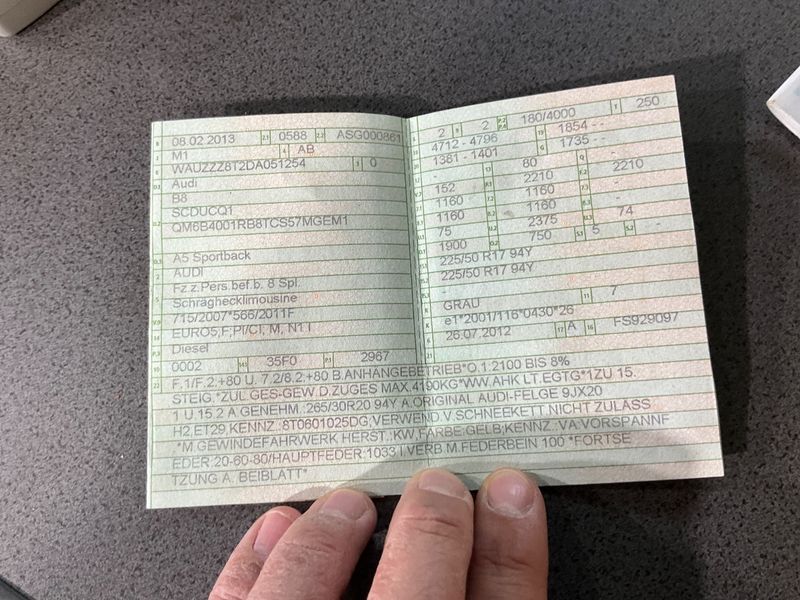 B 08.02.2013 2.1 0588 2.2 ASG000861
J M1 4 AB
E WAUZZZ8T2DA051254 3 0
D.1 Audi
B8
D.2 SCDUCQ1
QM6B4001RB8TCS57MGEM1
D.3 A5 Sportback
2 AUDI
5 Fz.z.Pers.bef.b. 8 Spl.
Schräghecklimousine
V.9 715/2007*566/2011F
14 EURO5,F;PI/CI, M, N1 I
P.3 Diesel
10 0002 14.1 35F0 P.1 2967
L 2 9 2 P.2 P.4 180/4000 T 250
18 4712 - 4796 19 1854 - -
20 1381 - 1401 G 1735 - -
12 - 13 80 Q -
V.7 152 F.1 2210 F.2 2210
7.1 1160 7.2 1160 7.3 -
8.1 1160 8.2 1160 8.3 -
U.1 75 U.2 2375 U.3 74
O.1 1900 O.2 750 S.1 5 S.2 -
15.1 225/50 R17 94Y
15.2 225/50 R17 94Y
15.3 -
R GRAU 11 7
K e1*2001/116*0430*26
6 26.07.2012 17 A 16 FS929097
21
22 F.1/F.2:+80 U. 7.2/8.2:+80 B.ANHÄNGEBETRIEB*O.1:2100 BIS 8%
STEIG.*ZUL.GES-GEW.D.ZUGES MAX.4190KG*WW.AHK LT.EGTG*1ZU 15.
1 U.15.2 A.GENEHM.:265/30R20 94Y A.ORIGINAL AUDI-FELGE 9JX20
H2,ET29,KENNZ.:8T0601025DG;VERWEND.V.SCHNEEKETT.NICHT ZULÄSS
.*M.GEWINDEFAHRWERK HERST.:KW,FARBE:GELB;KENNZ.:VA:VORSPANNF
EDER:20-60-80/HAUPTFEDER:1033 I.VERB.M.FEDERBEIN 100 *FORTSE
TZUNG A. BEIBLATT*